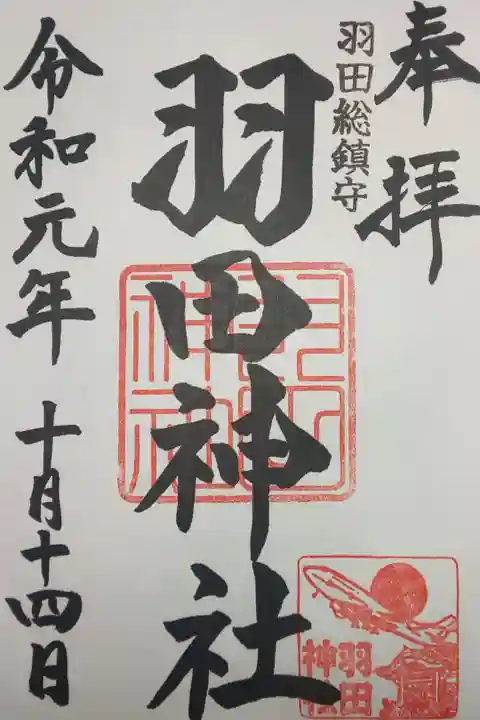 奉拝
羽田総鎮守
羽田神社
令和元年 十月十四日
羽田
神社
羽田
神社